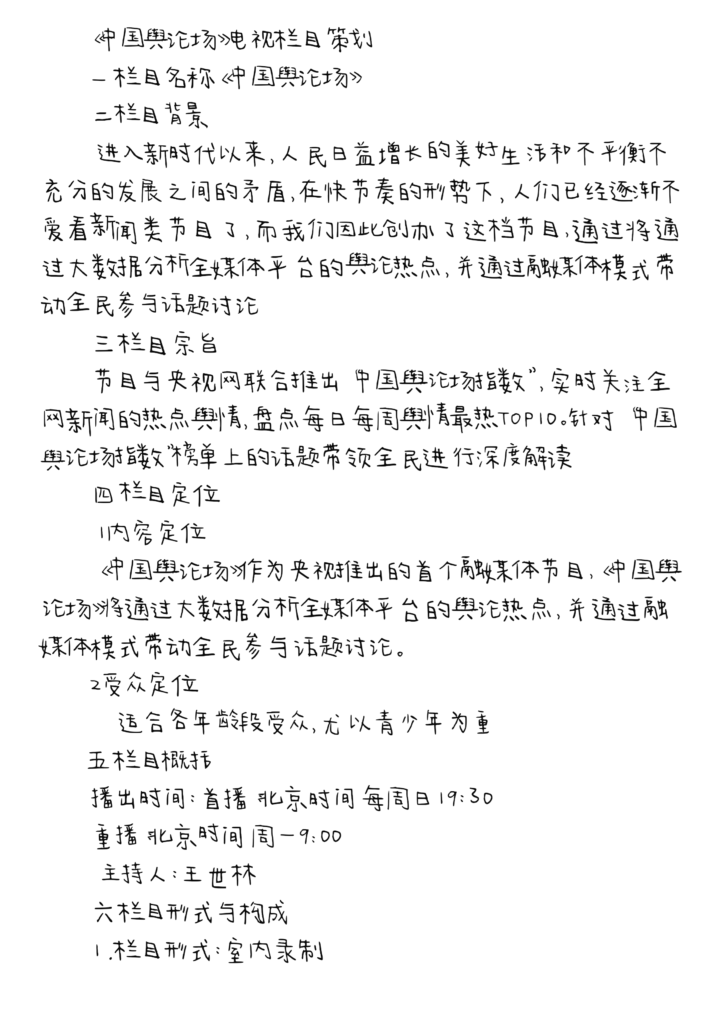 《中国舆论场》电视栏目策划
一栏目名称《中国舆论场》
二栏目背景
进入新时代以来,人民日益增长的美好生活和不平衡不
充分的发展之间的矛盾,在快节奏的形势下,人们已经逐渐不
爱看新闻类节目了,而我们因此创办了这档节目,通过将通
过大数据分析全媒体平台的舆论热点,并通过融媒体模式带
动全民参与话题讨论
三栏目宗旨
节目与央视网联合推出“中国舆论场指数”,实时关注全
网新闻的热点舆情,盘点每日每周舆情最热TOP10。针对“中国
舆论场指数”榜单上的话题带领全民进行深度解读
四栏目定位
1内容定位
《中国舆论场》作为央视推出的首个融媒体节目,《中国舆
论场》将通过大数据分析全媒体平台的舆论热点,并通过融
媒体模式带动全民参与话题讨论。
2受众定位
适合各年龄段受众,尤以青少年为重
五栏目概括
播出时间:首播 北京时间 每周日19:30
重播 北京时间 周一9:00
主持人:王世林
六栏目形式与构成
1.栏目形式:室内录制